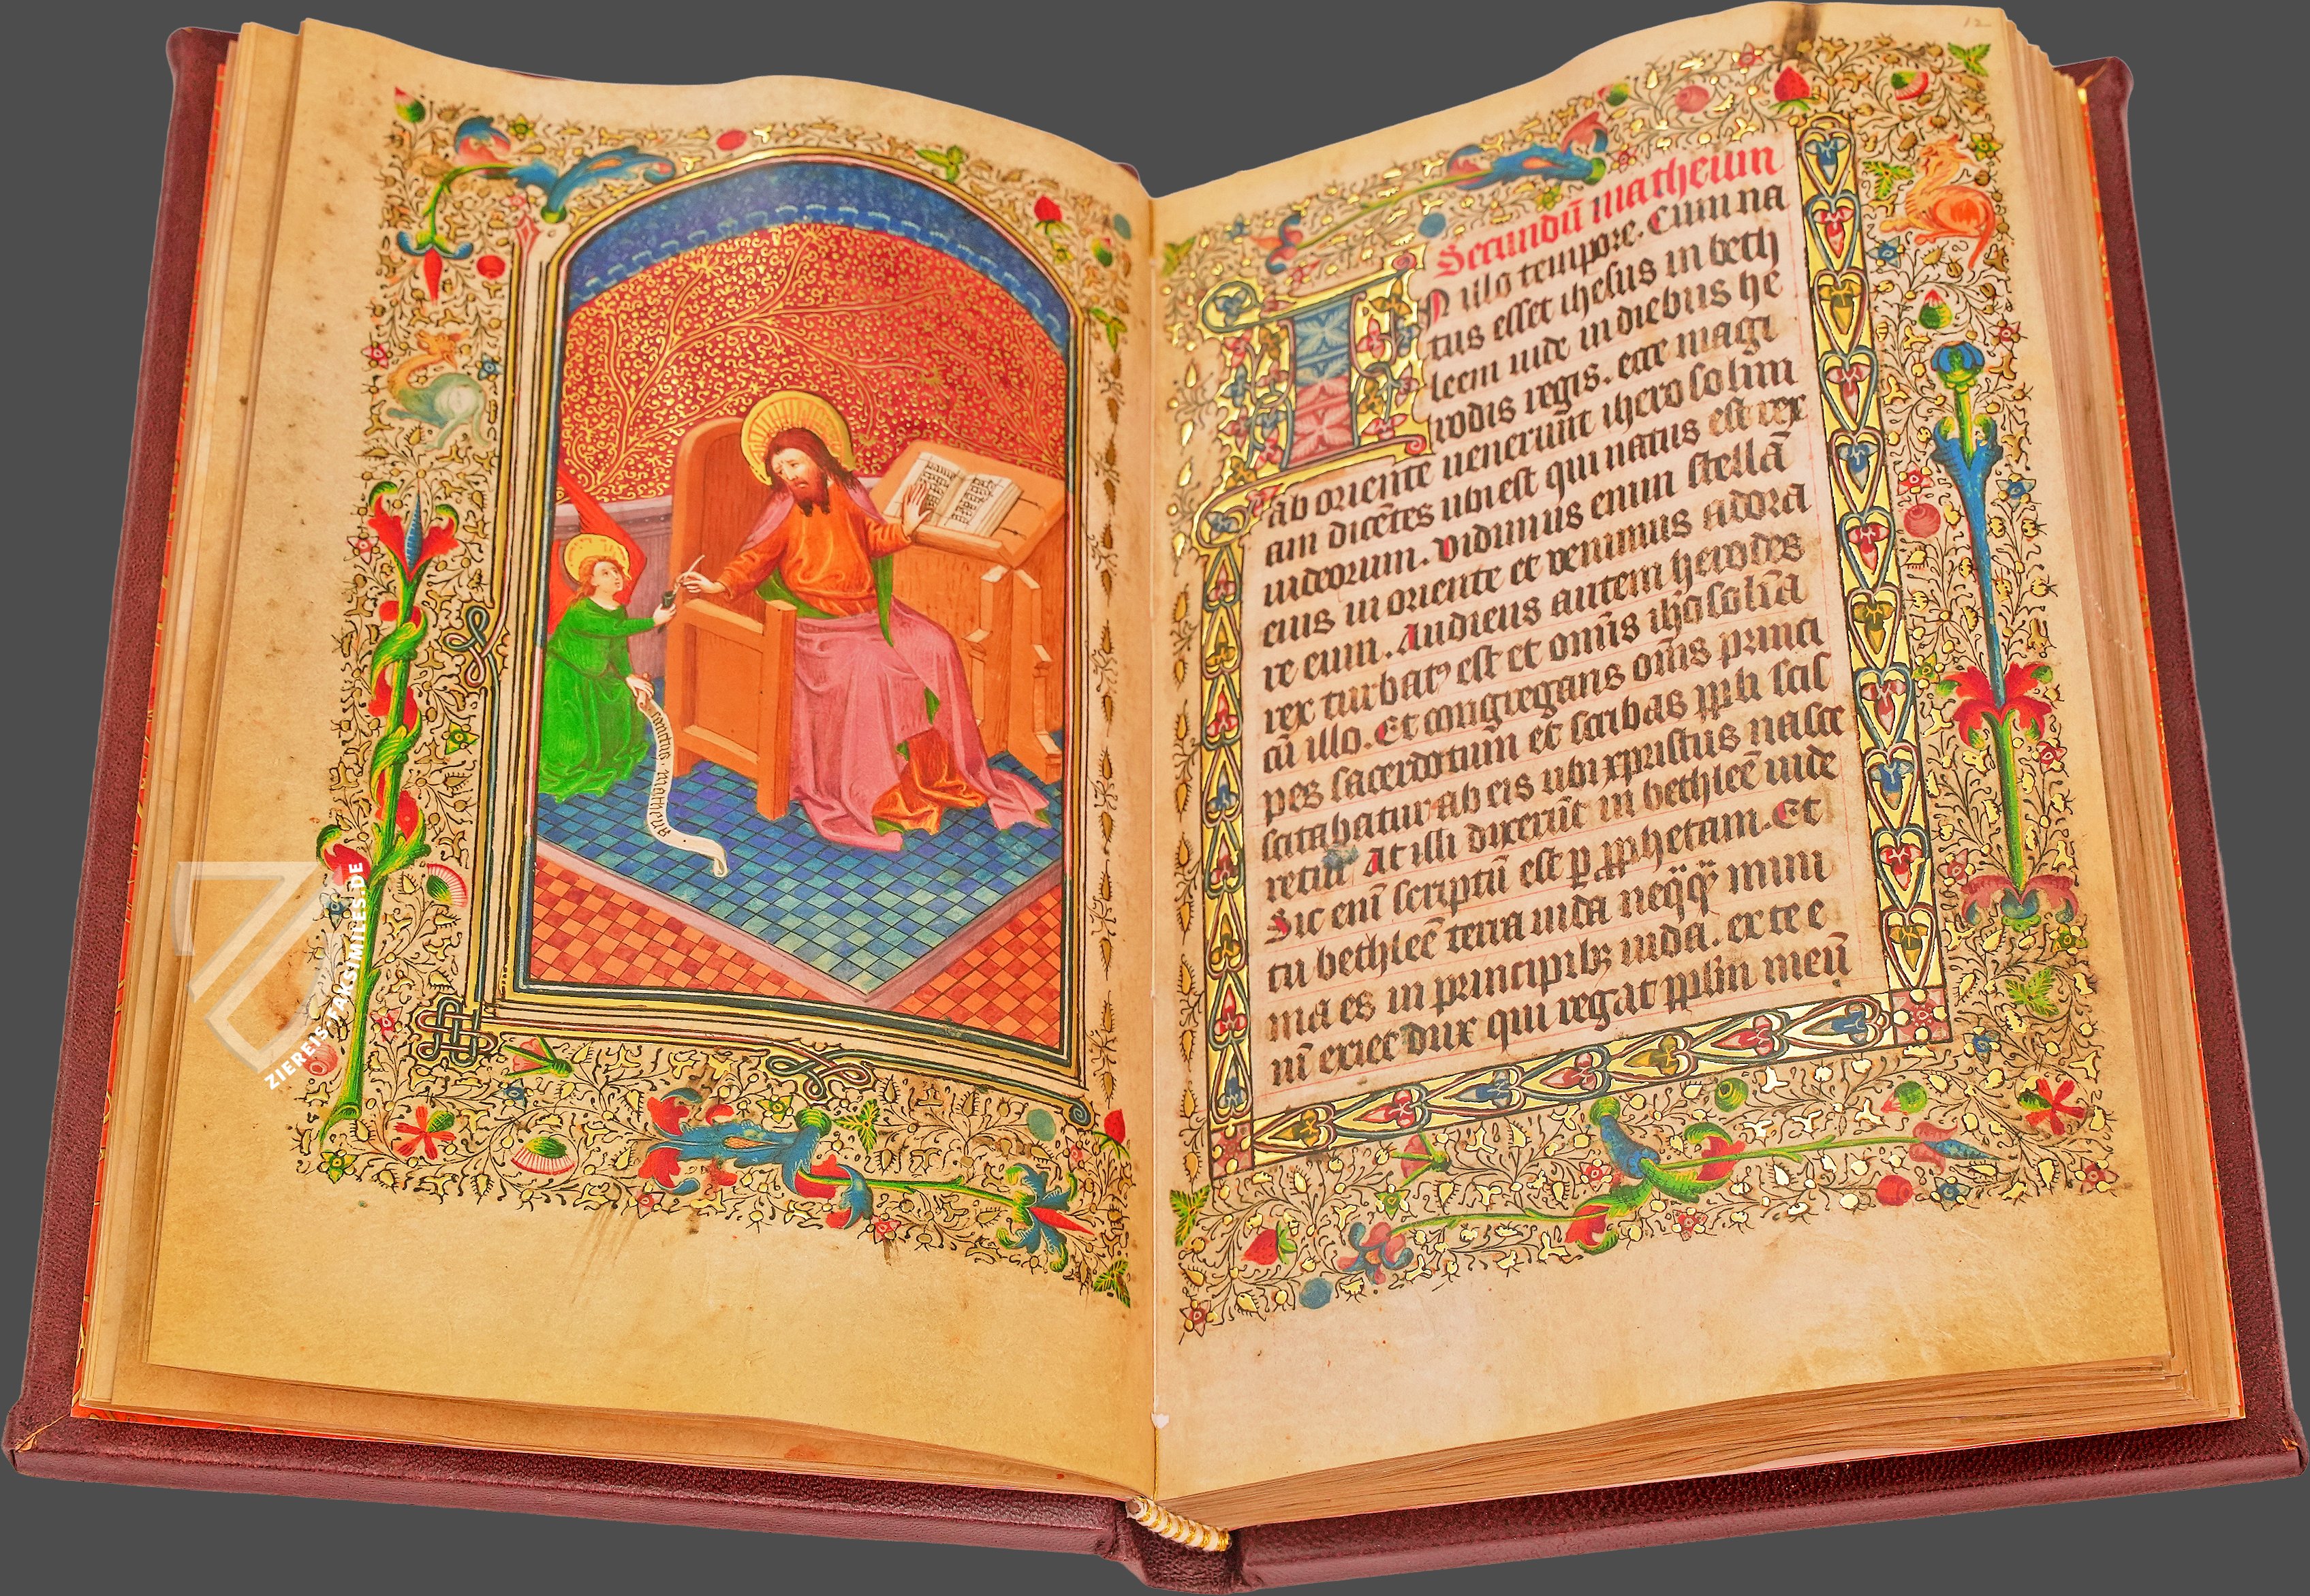 sanctus. matheus
12
Secundū matheum
N illo tempore. Cum na
tus esset ihesus in beth
leem iude in diebus he
rodis regis. ecce magi
ab oriente uenerūt ihero solim
am dicētes ubi est qui natus est rex
iudeorum. vidimus enim stellā
eius in oriente et venimus adora
re eum. Audiens autem herodes
rex turbatꝰ est et omīs ihosolīa
cū illo. Et congregans oms princi
pes sacerdotum et scribas ppli scis
citabatur ab eis ubi xpristus nasce
retur At illi dixerūt in bethleē iude
Sic enī scriptū est ꝑ pphetam. Et
tu bethleē terra iuda neqq̄ mini
ma es in principibꝫ iuda. ex te e
nī exiet dux qui regat pplm meū
ZIEREIS-FAKSIMILES.DE